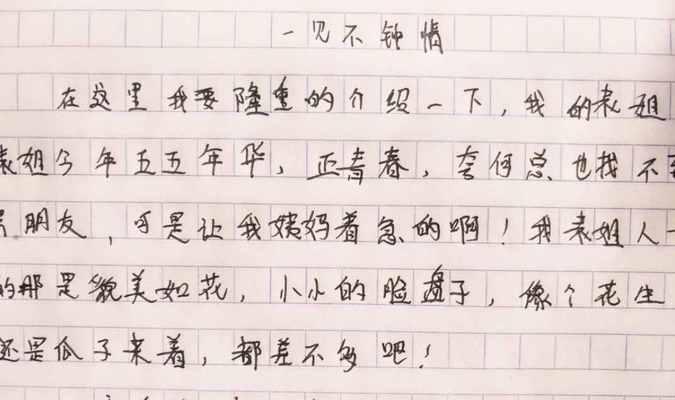 一见不钟情
在这里我要隆重的介绍一下，我的表姐
表姐今年五五年华，正青春，奈何总也找不到
男朋友，可是让我姨妈着急的啊！我表姐人
的那是貌美如花，小小的脸盘子，像个花生
还是瓜子来着，都差不多吧！